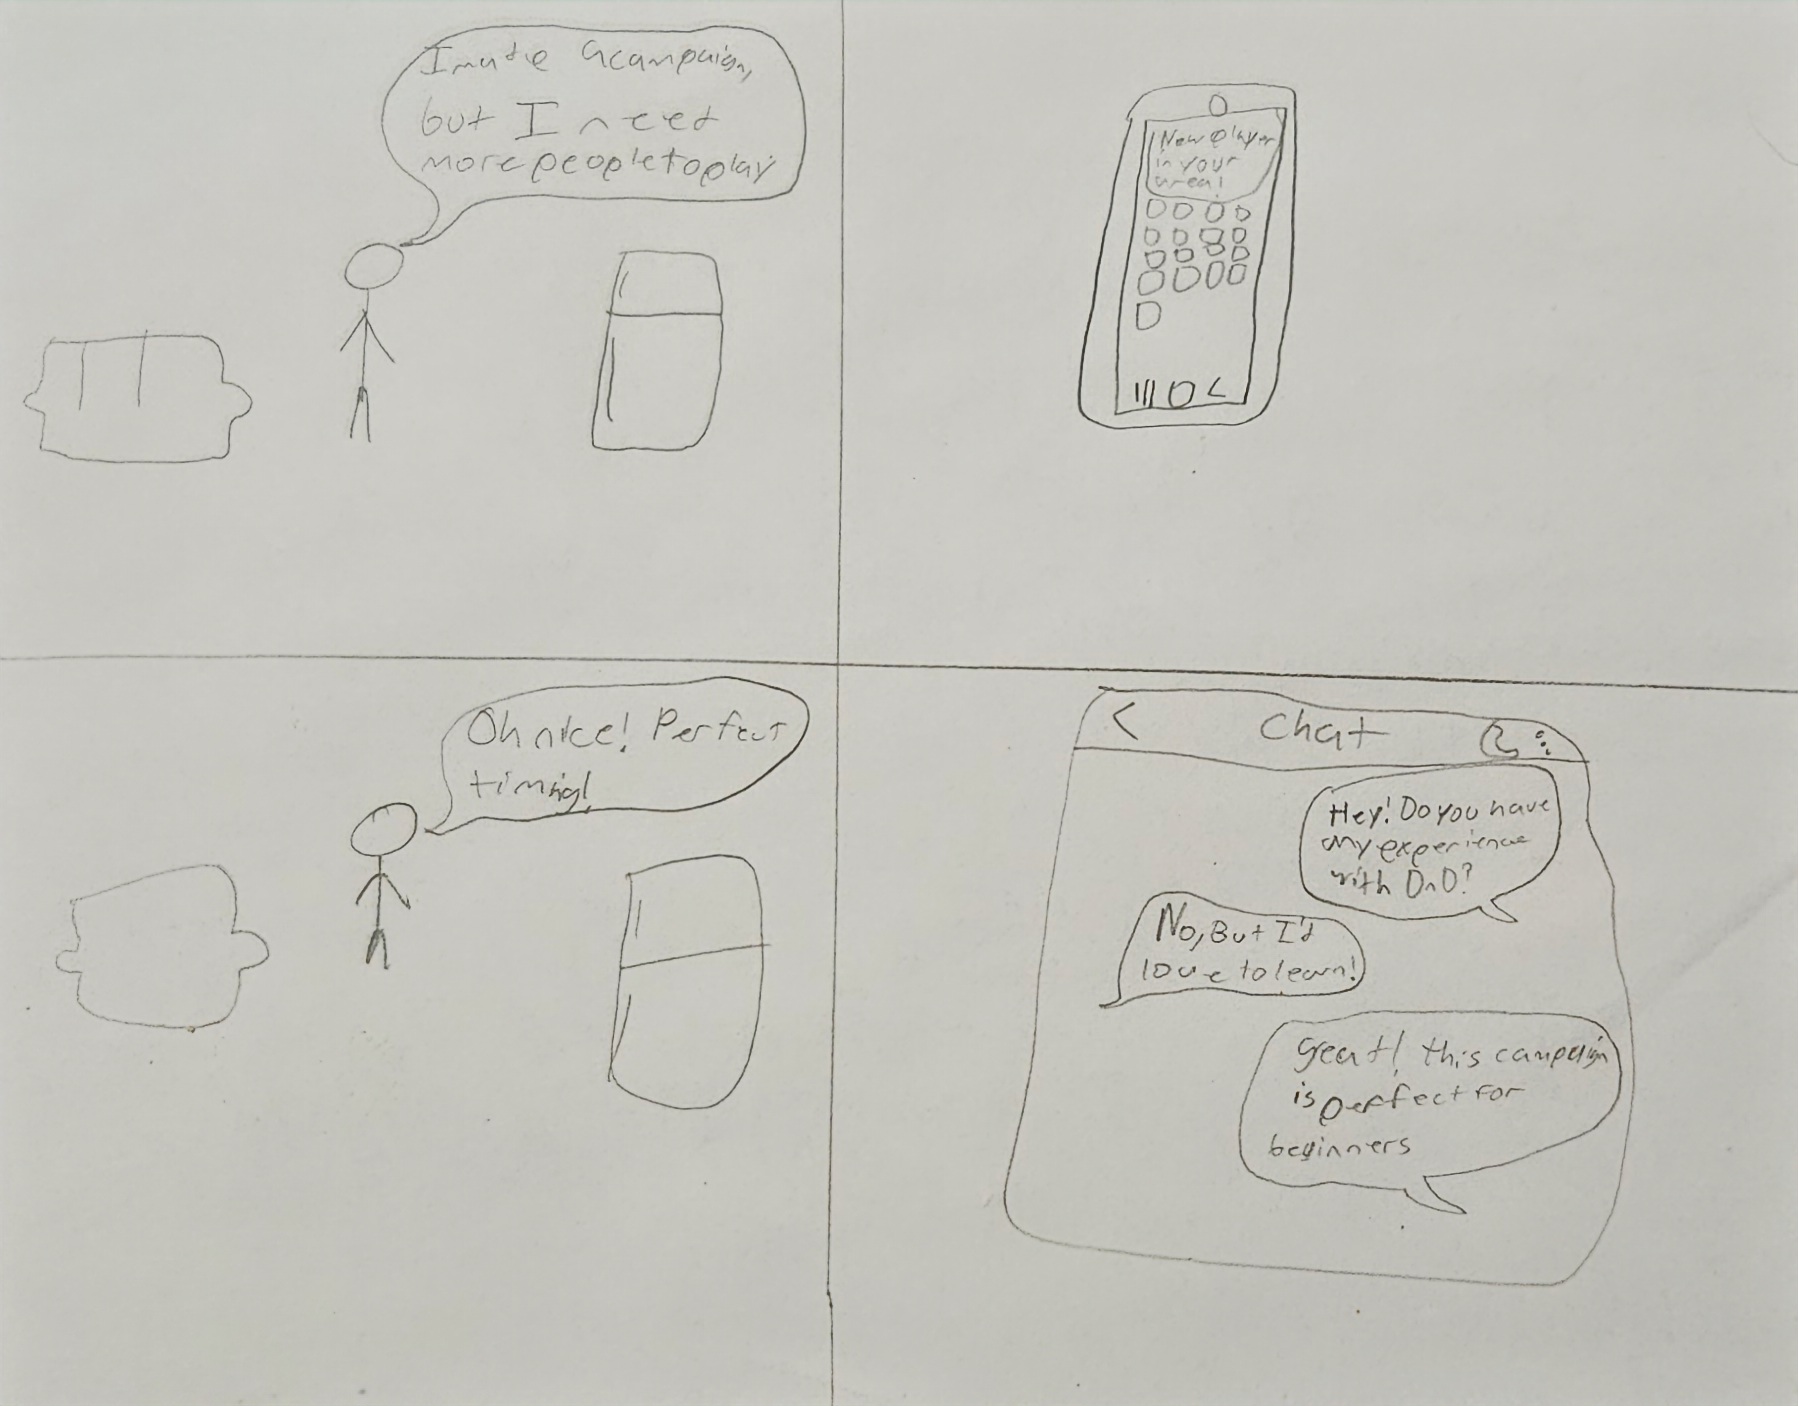 I made a campaign,
but I need
more people to play
New player
in your
area!
Oh nice! Perfect
timing!
Chat
Hey! Do you have
any experience
with DnD?
No, But I'd
love to learn!
great! this campaign
is perfect for
beginners